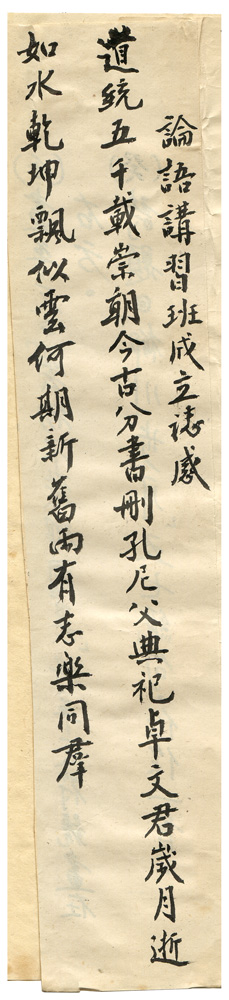 論語講習班成立誌感
道統五千載崇朝今古分書刪孔尼父典祀卓文君歲月逝
如水乾坤飄似雲何期新舊雨有志樂同羣